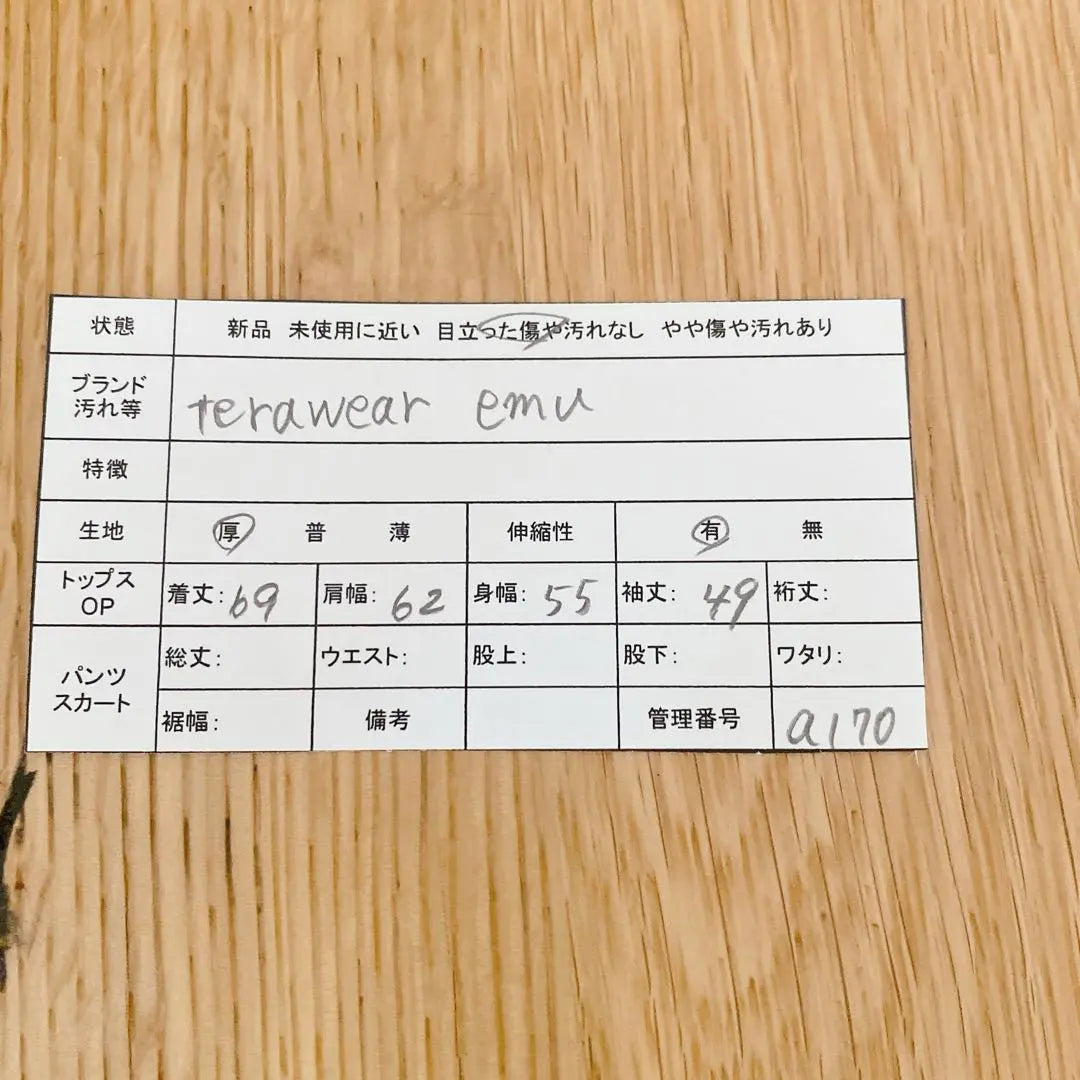 状態 新品 未使用に近い 目立った傷や汚れなし やや傷や汚れあり
ブランド
汚れ等
terawear emu
特徴
生地 厚 普 薄 伸縮性 有 無
トップス
OP
着丈:69 肩幅:62 身幅:55 袖丈:49 裄丈:
パンツ
スカート
総丈: ウエスト: 股上: 股下: ワタリ:
裾幅: 備考 管理番号 a170